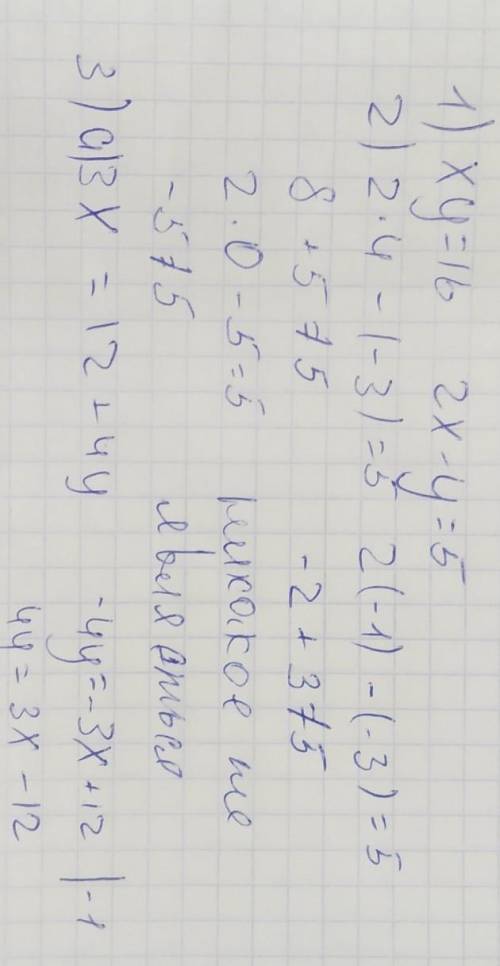 1) xy=16 2x-y=5
2) 2·4-(-3)=5 2(-1)-(-3)=5
8+5≠5 -2+3≠5
2·0-5=5 никакое не
-5≠5
3) а)3x=12+4y -4y=-3x+12 |-1
4y=3x-12